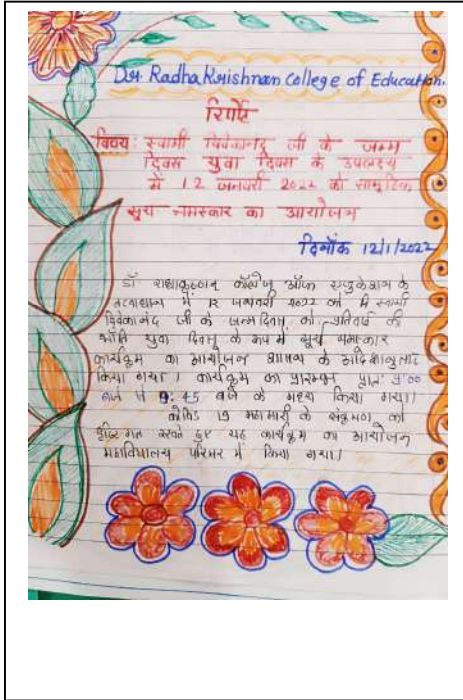 Dr. Radha Krishnan College of Education.
रिपोर्ट
विषय : स्वामी विवेकानंद जी के जन्म
दिवस युवा दिवस के उपलक्ष्य
में 12 जनवरी 2022 को सामूहिक
सूर्य नमस्कार का आयोजन
दिनाँक 12/1/2022
डॉ राधाकृष्णन् कॉलेज ऑफ एजुकेशन के
तत्वाधान में 12 जनवरी 2022 को स्वामी
विवेकानंद जी के जन्म दिवस को प्रतिवर्ष की
भाँति युवा दिवस के रूप में सूर्य नमस्कार
कार्यक्रम का आयोजन शासन के आदेशानुसार
किया गया। कार्यक्रम का प्रारम्भ प्रातः 9:00
बजे से 9:45 बजे के मध्य किया गया।
कोविड 19 महामारी के संक्रमण को
रखते हुए यह कार्यक्रम का आयोजन
महाविद्यालय परिसर में किया गया।